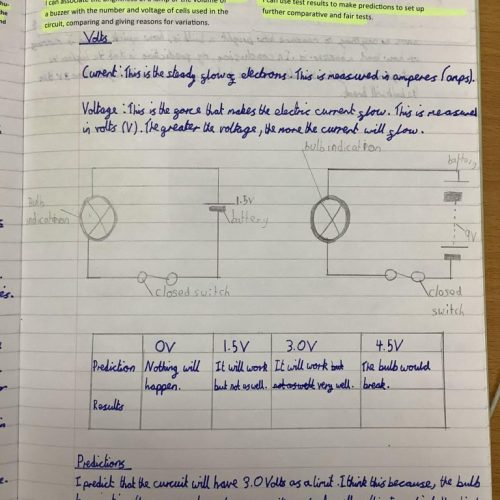 I can associate the brightness of a lamp or the volume of
a buzzer with the number and voltage of cells used in the
circuit, comparing and giving reasons for variations.
I can use test results to make predictions to set up
further comparative and fair tests.
Volts
Current: This is the steady glow of electrons. This is measured in amperes (amps).
Voltage: This is the gorce that makes the electric current glow. This is measured
in volts (V). The greater the voltage, the more the current will glow.
Bulb
indication
1.5V
battery
closed switch
bulb indication
battery
9V
closed
switch
0V 1.5V 3.0V 4.5V
Prediction Nothing will It will work It will work but The bulb would
happen. but not as well. not as well very well. break.
Results
Predictions
I predict that the curcuit will have 3.0 Volts as a limit. I think this because, the bulb